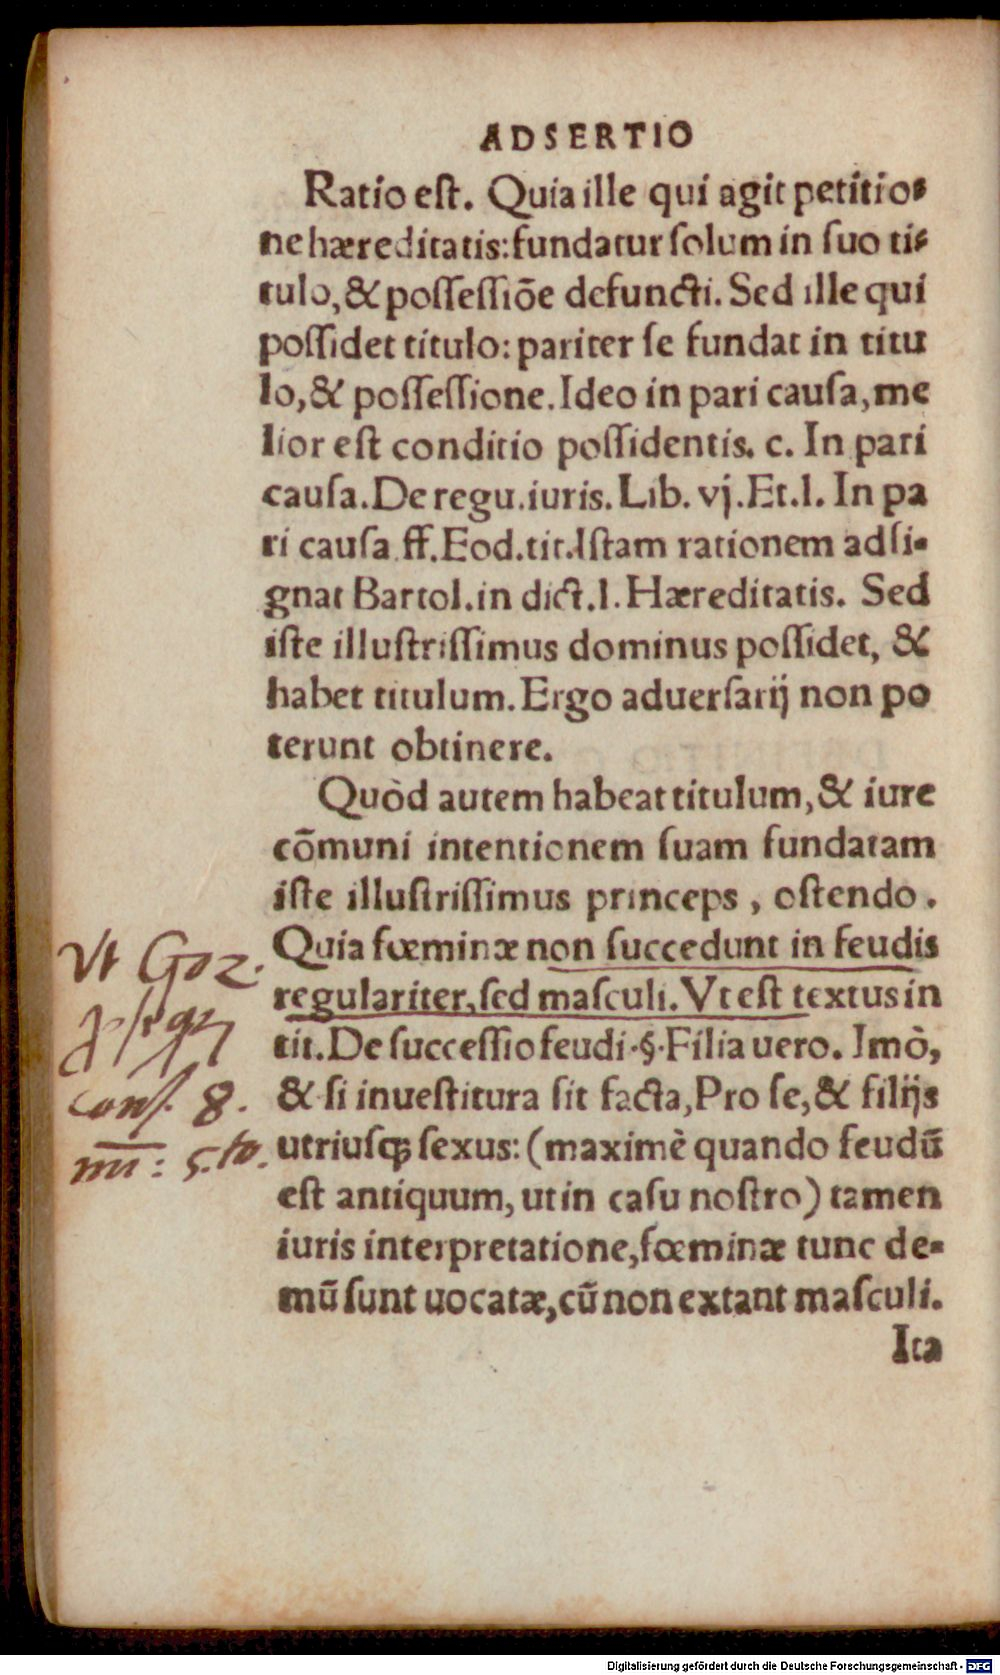 ADSERTIO
Ratio eſt. Quia ille qui agit petitio⸗
ne hæreditatis: fundatur ſolum in ſuo ti⸗
tulo, & poſſeſſiōe defuncti. Sed ille qui
poſſidet titulo: pariter ſe fundat in titu
lo, & poſſeſſione. Ideo in pari cauſa, me
lior eſt conditio poſſidentis. c. In pari
cauſa. De regu. iuris. Lib. vj. Et. l. In pa
ri cauſa ff. Eod. tit. Iſtam rationem adſi⸗
gnat Bartol. in dict. l. Hæreditatis. Sed
iſte illuſtriſſimus dominus poſſidet, &
habet titulum. Ergo aduerſarij non po
terunt obtinere.
Quòd autem habeat titulum, & iure
cōmuni intentionem ſuam fundatam
iſte illuſtriſſimus princeps, oſtendo.
Quia fœminæ non ſuccedunt in feudis
regulariter, ſed maſculi. Vt eſt textus in
tit. De ſucceſſio feudi. §. Filia uero. Imò,
& ſi inueſtitura ſit facta, Pro ſe, & filijs
utriuſqꝫ ſexus: (maximè quando feudū
eſt antiquum, ut in caſu noſtro) tamen
iuris interpretatione, fœminæ tunc de⸗
mū ſunt uocatæ, cū non extant maſculi.
Ita
Vt Goz.
conſ. 8.
nu: 5. to.
Digitalisierung gefördert durch die Deutsche Forschungsgemeinschaft - DFG